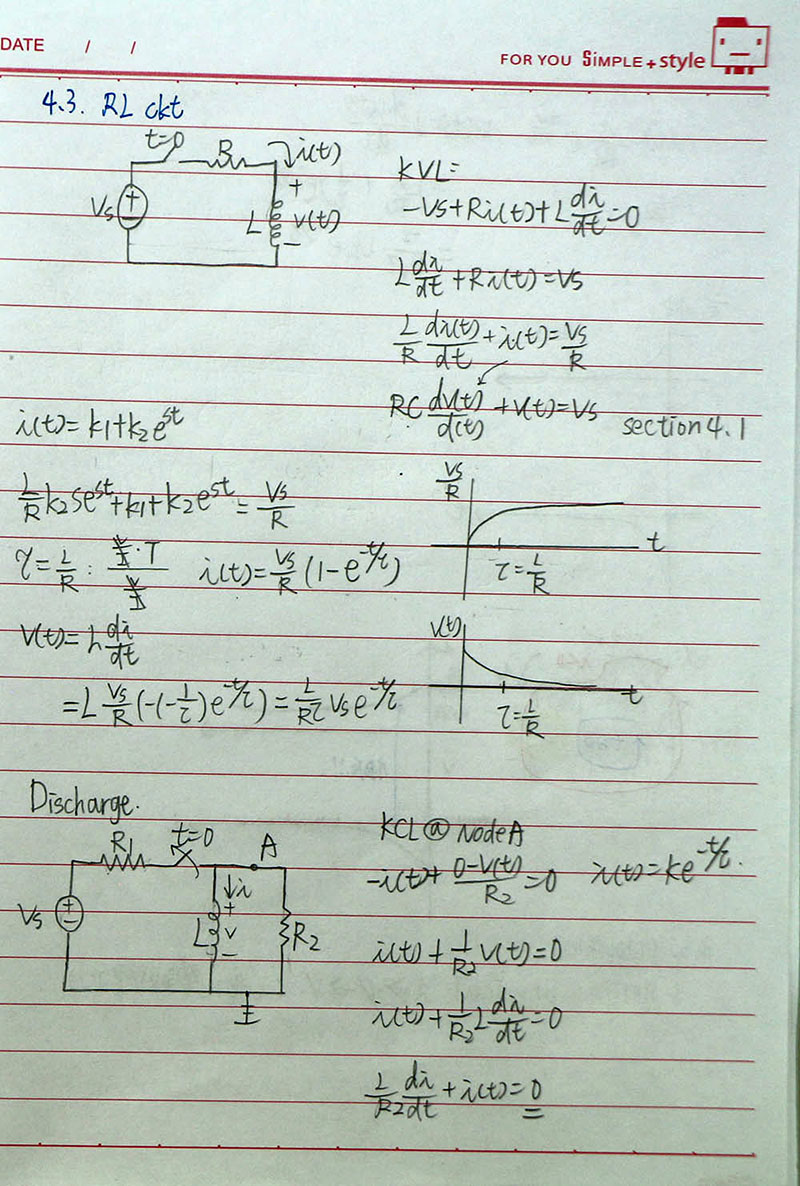 DATE / /
FOR YOU SiMPLE + style
4.3. RL ckt
t=0 R i(t)
Vs + L + v(t) −
KVL=
−Vs+Ri(t)+L di/dt=0
L di/dt +Ri(t)=Vs
L/R di(t)/dt +i(t)= Vs/R
RC dv(t)/d(t) +v(t)=Vs section 4.1
i(t)=k1+k2e^st
L/R k2se^st+k1+k2e^st= Vs/R
τ= L/R : (V/I · T)/(V/I) i(t)= Vs/R (1−e^-t/τ)
Vs/R
t
τ= L/R
V(t)=L di/dt
=L Vs/R (−(−1/τ)e^-t/τ)= L/Rτ Vs e^-t/τ
V(t)
t
τ= L/R
Discharge.
R1 t=0 A
Vs + − L ↓i + v − R2
KCL@ Node A
−i(t)+ (0−V(t))/R2 =0 i(t)=ke^-t/τ.
i(t)+ 1/R2 V(t)=0
i(t)+ 1/R2 L di/dt=0
L/R2 di/dt +i(t)=0